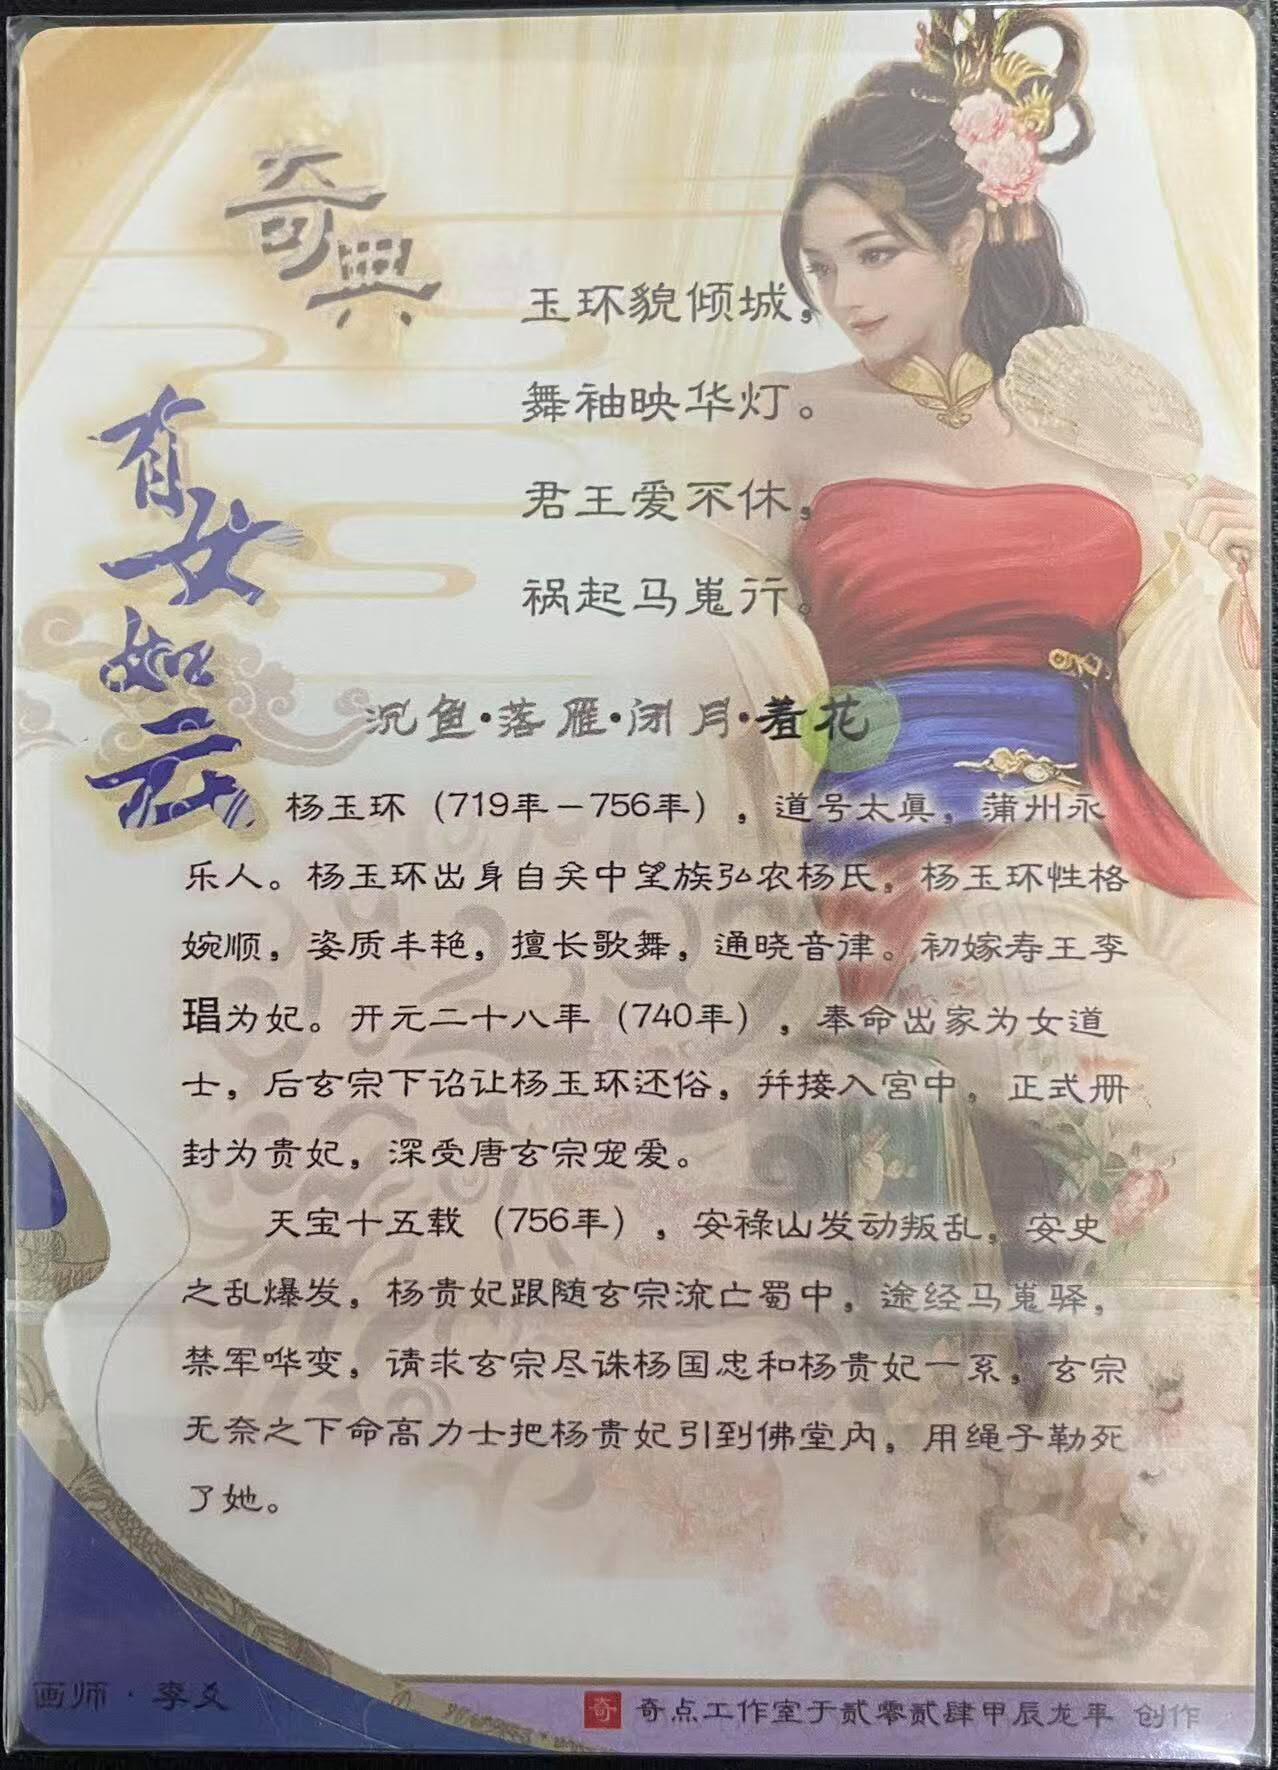 奇典
有女如云
玉环貌倾城，
舞袖映华灯。
君王爱不休，
祸起马嵬行。
沉鱼·落雁·闭月·羞花
杨玉环（719年－756年），道号太真，蒲州永
乐人。杨玉环出身自关中望族弘农杨氏，杨玉环性格
婉顺，姿质丰艳，擅长歌舞，通晓音律。初嫁寿王李
琩为妃。开元二十八年（740年），奉命出家为女道
士，后玄宗下诏让杨玉环还俗，并接入宫中，正式册
封为贵妃，深受唐玄宗宠爱。
天宝十五载（756年），安禄山发动叛乱，安史
之乱爆发，杨贵妃跟随玄宗流亡蜀中，途经马嵬驿，
禁军哗变，请求玄宗尽诛杨国忠和杨贵妃一系，玄宗
无奈之下命高力士把杨贵妃引到佛堂内，用绳子勒死
了她。
画师·李爻
奇 奇点工作室于贰零贰肆甲辰龙年 创作